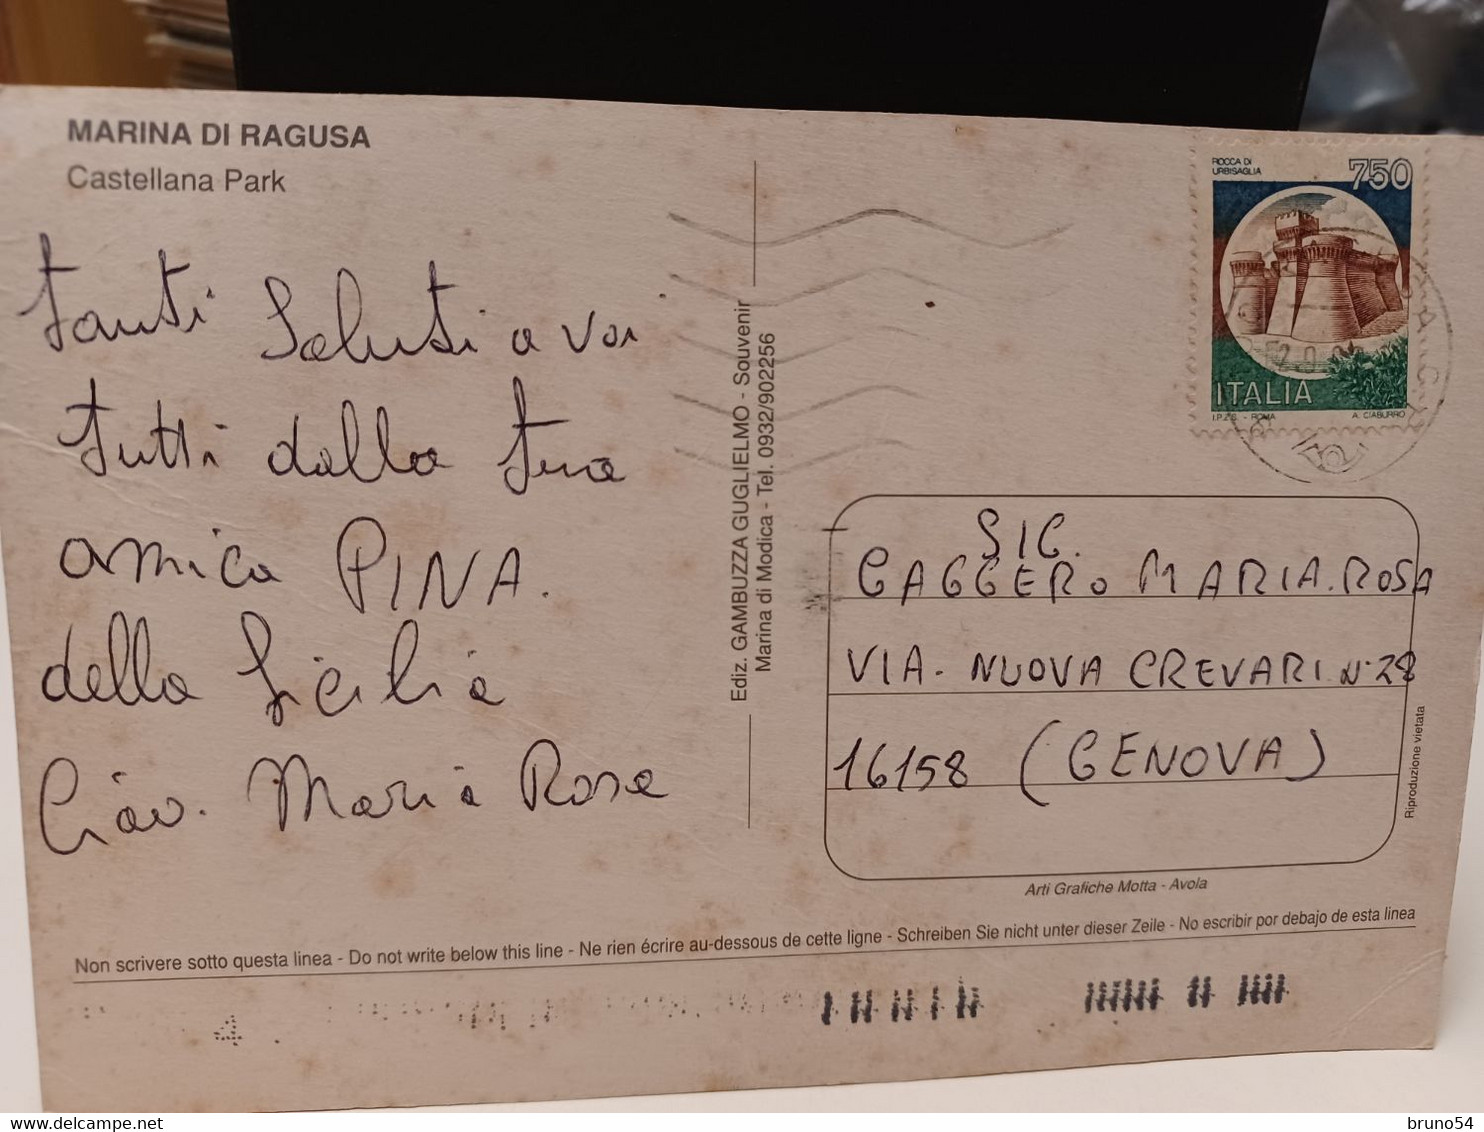 MARINA DI RAGUSA
Castellana Park
Tanti Saluti a voi
Tutti dalla tua
amica PINA.
della Sicilia
Ciao. Maria Rosa
Ediz. GAMBUZZA GUGLIELMO - Souvenir
Marina di Modica - Tel. 0932/902256
ROCCA DI
URBISAGLIA
750
ITALIA
I.P.Z.S. - ROMA A. CIABURRO
SIG.
GAGGERO MARIA. ROSA
VIA. NUOVA CREVARI N. 28
16158 (GENOVA)
Riproduzione vietata
Arti Grafiche Motta - Avola
Non scrivere sotto questa linea - Do not write below this line - Ne rien écrire au-dessous de cette ligne - Schreiben Sie nicht unter dieser Zeile - No escribir por debajo de esta linea
4
bruno54